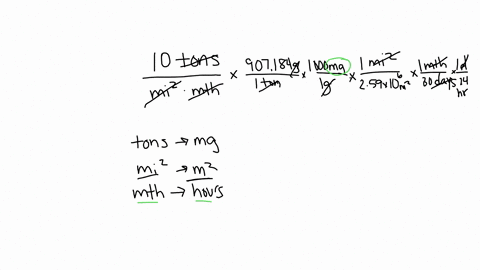 10 tons / mi² · mth × 907,184g / 1 ton × 1000mg / 1g × 1 mi² / 2.59x10⁶m² × 1 mth / 30 days × 1d / 24 hr
tons → mg
mi² → m²
mth → hours